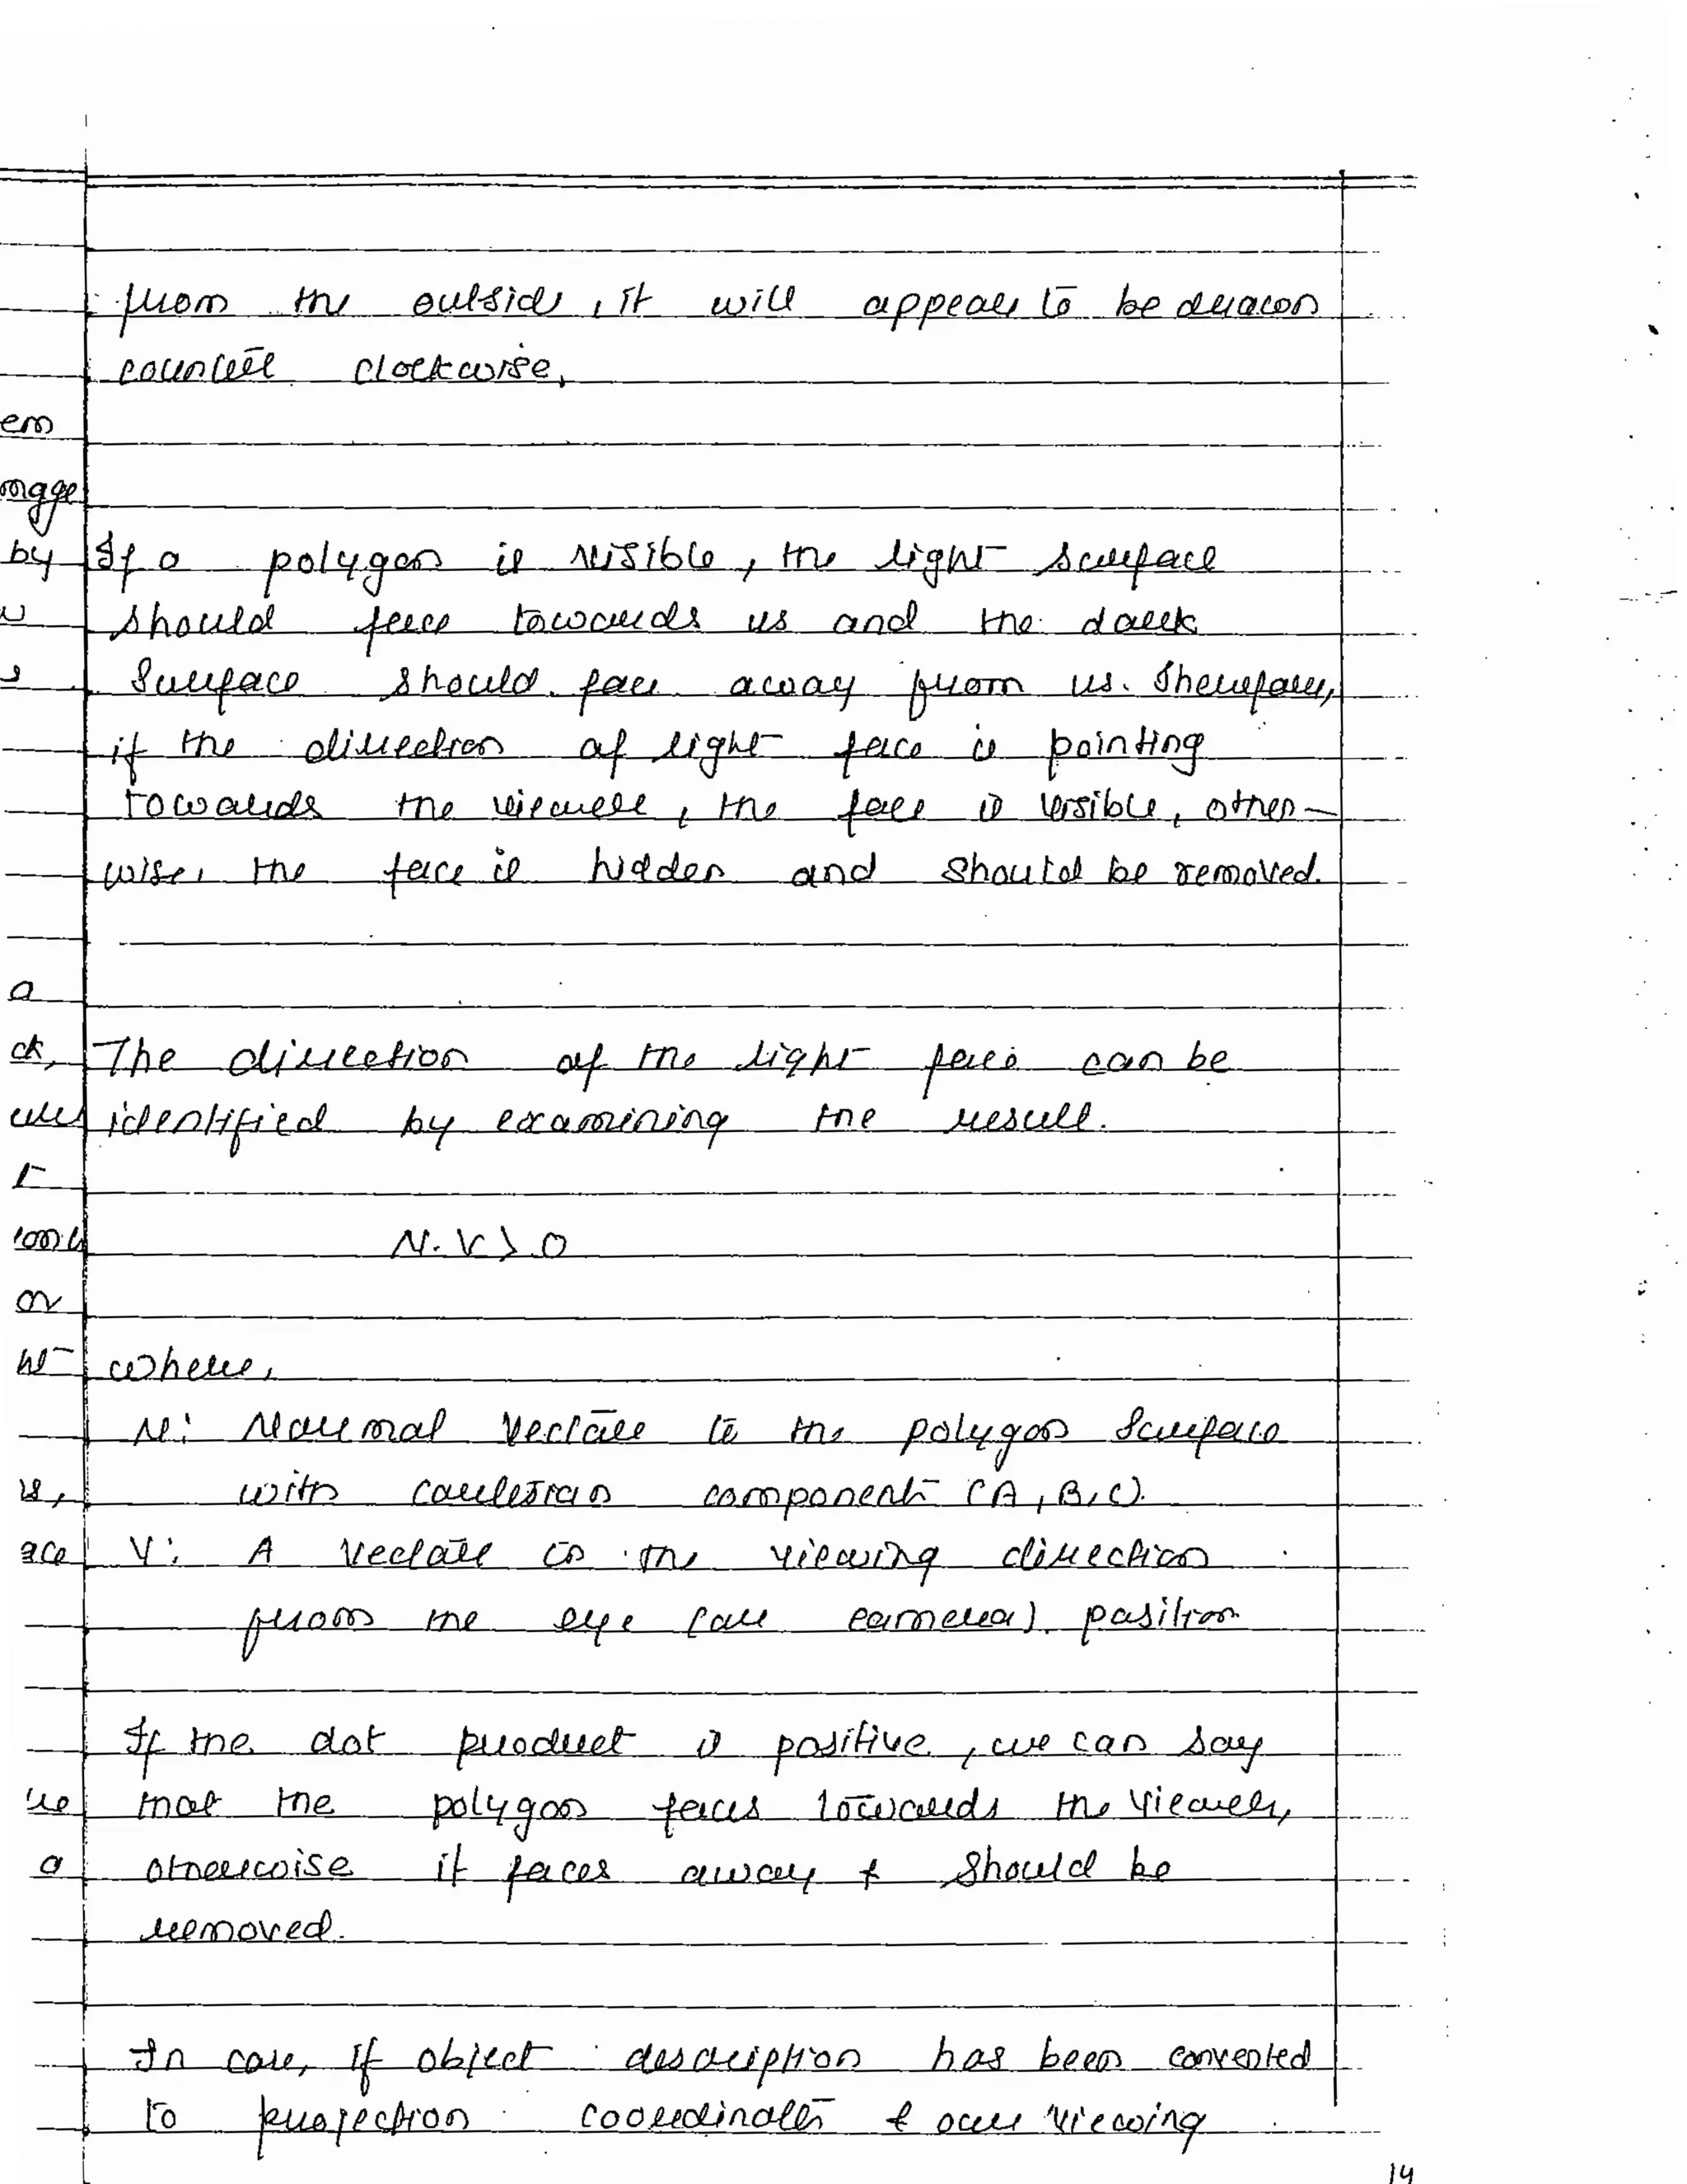 from the outside, it will appear to be drawn
counter clockwise,
em
by
If a polygon is visible, the light surface
should face towards us and the dark
surface should face away from us. Therefore,
if the direction of light face is pointing
towards the viewer, the face is visible, other-
wise, the face is hidden and should be removed.
a
ck,
The direction of the light face can be
identified by examining the result.
N.V > 0
or
where,
N: Normal Vector to the polygon surface
with cartesian component (A, B, C).
V: A Vector in the viewing direction
from the eye (or camera) position
If the dot product is positive, we can say
that the polygon faces towards the viewer,
a
otherwise it faces away & should be
removed.
In case, if object description has been converted
to projection coordinates & our viewing
14